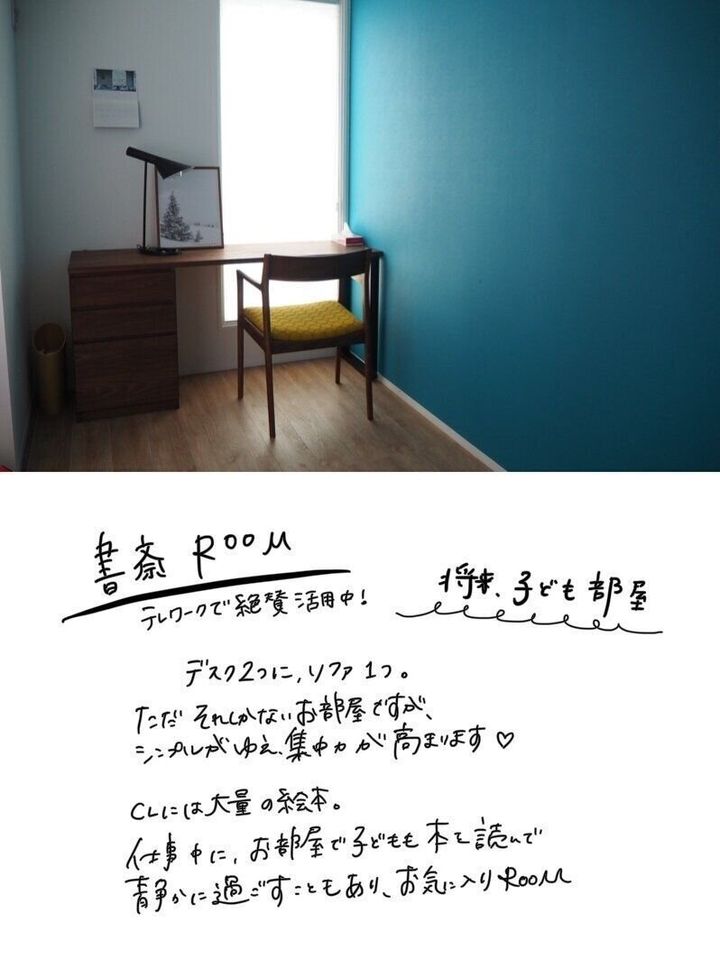 書斎 ROOM
テレワークで絶賛活用中！
将来、子ども部屋
デスク2つに、ソファ1つ。
ただ それしかないお部屋ですが、
シンプルがゆえ、集中力が高まります♡
CLには大量の絵本。
仕事中に、お部屋で子どもも本を読んで
静かに過ごすこともあり、お気に入りROOM